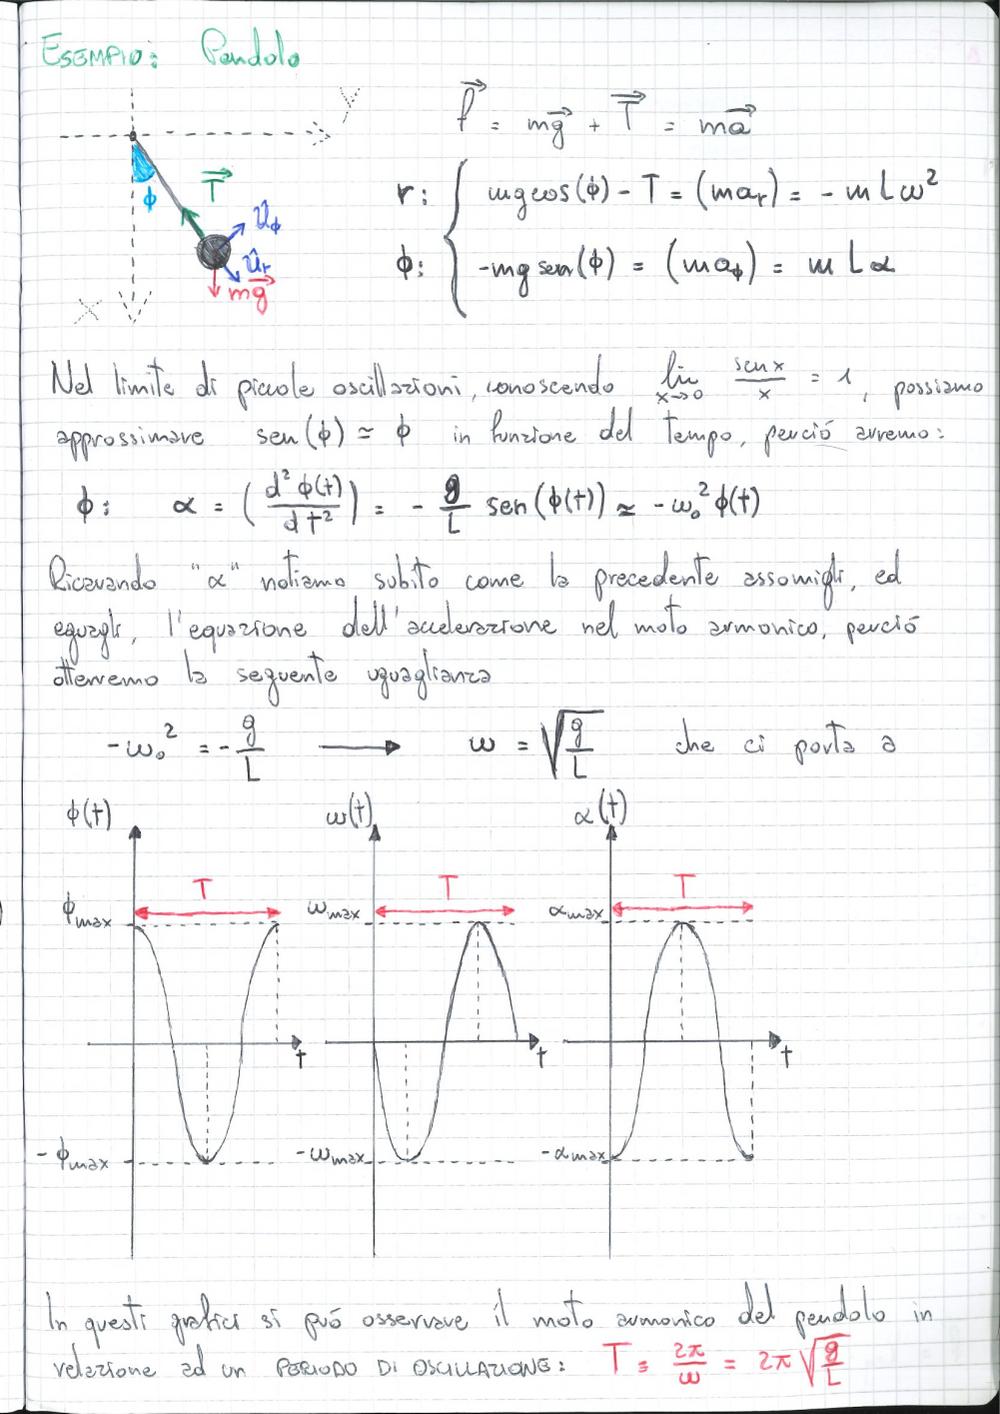 ESEMPIO: Pendolo
y
f⃗ = mg⃗ + T⃗ = ma⃗
T⃗
r: { mg cos(ϕ) - T = (ma_r) = - m L ω²
ϕ
û_ϕ
û_r
ϕ: { -mg sen(ϕ) = (ma_ϕ) = m L α
mg⃗
x
Nel limite di piccole oscillazioni, conoscendo lim x→0 sen x / x = 1, possiamo
approssimare sen(ϕ) ≃ ϕ in funzione del tempo, perció avremo:
ϕ: α = (d²ϕ(t)/dt²) = - g/L sen(ϕ(t)) ≃ -ω₀² ϕ(t)
Ricavando "α" notiamo subito come la precedente assomigli, ed
eguagli, l'equazione dell'accelerazione nel moto armonico, perció
otterremo la seguente uguaglianza
-ω₀² = - g/L → ω = √(g/L) che ci porta a
ϕ(t) ω(t) α(t)
T T T
ϕmax ωmax αmax
t t t
-ϕmax -ωmax -αmax
In questi grafici si puó osservare il moto armonico del pendolo in
relazione ad un PERIODO DI OSCILLAZIONE: T = 2π/ω = 2π √(g/L)